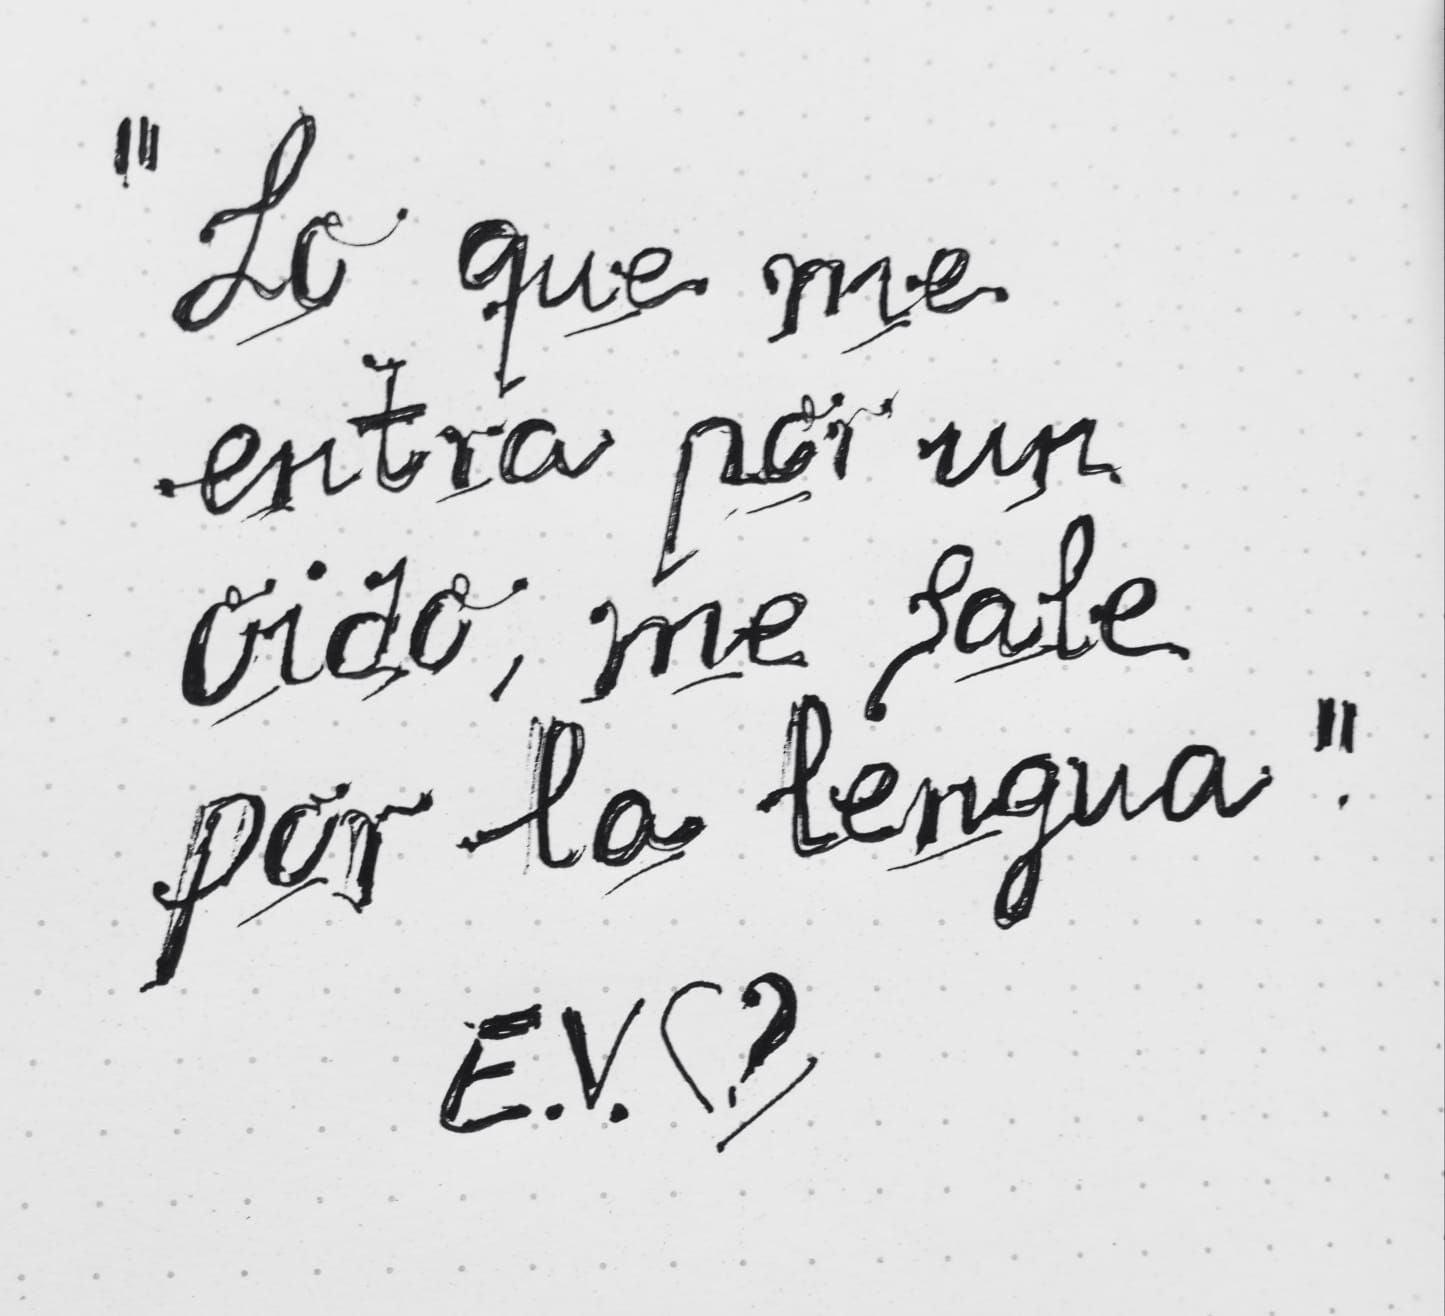 "Lo que me
entra por un
oido, me sale
por la lengua".
E.V.♡